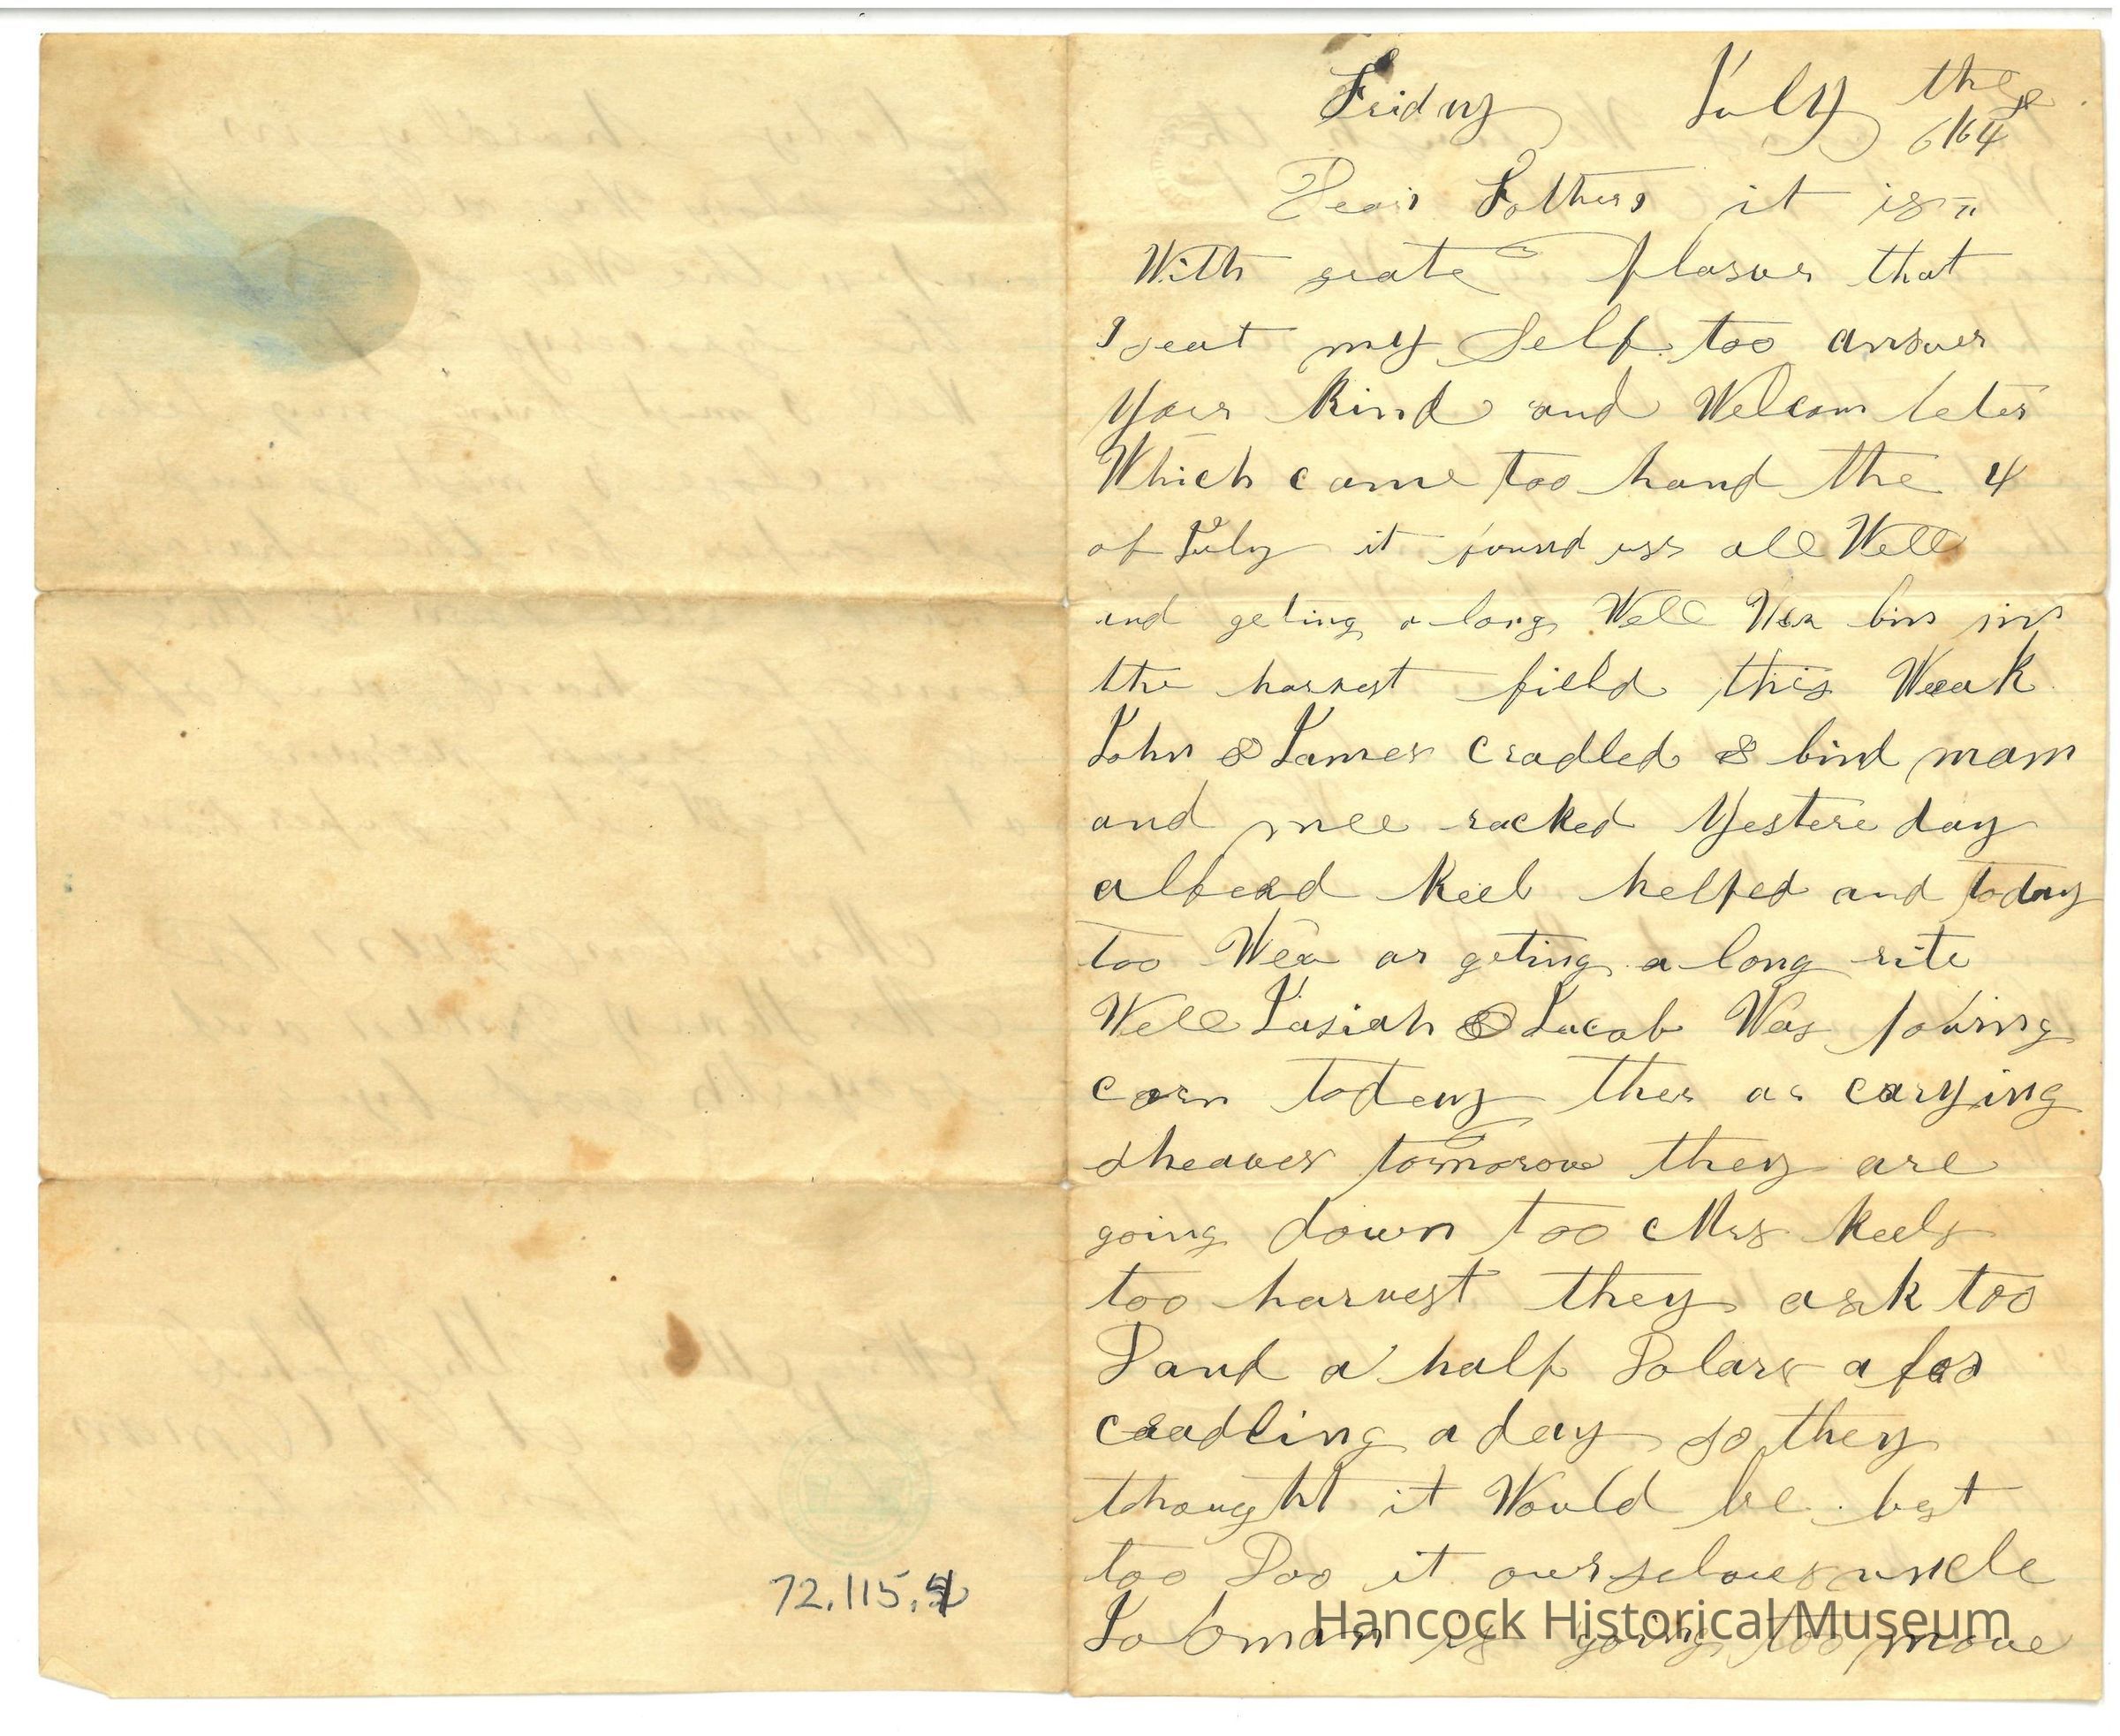 Friday July the
6 1864
Dear Father it is
With grate plasure that
I seat my self too answer
your kind and Welcom leter
Which came too hand the 4
of July it found uss all Well
and geting a long Well Wea bin in
the harvest field this Weeak
John & James cradled & bind mam
and mee racked Yestere day
alferd Keel helped and today
too Wea ar geting a long rite
Well Josiah & Jacob Was
corn today ar carying
sheaves tomorow they are
going down too Mrs Keels
too harvest they ask too
D and a half Dolars a for
cradling a day so they
thought it Would be best
too Doo it ourselves uncle
is going too move
72.115.
Hancock Historical Museum